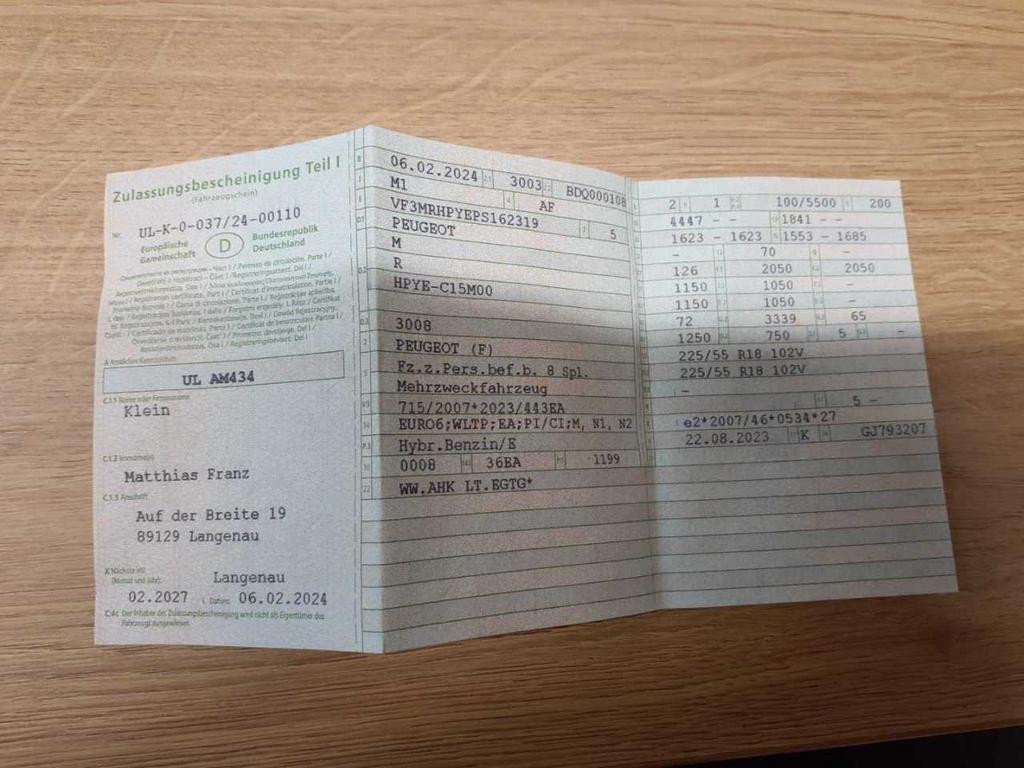 Zulassungsbescheinigung Teil I
(Fahrzeugschein)
Nr. UL-K-0-037/24-00110
Europäische Gemeinschaft
D
Bundesrepublik Deutschland
A Amtliches Kennzeichen
UL AM434
C.1.1 Name oder Firmenname
Klein
C.1.2 Vorname(n)
Matthias Franz
C.1.3 Anschrift
Auf der Breite 19
89129 Langenau
X Nächste HU (Monat und Jahr):
Langenau
02.2027 I Datum: 06.02.2024
C.4c Der Inhaber der Zulassungsbescheinigung wird nicht als Eigentümer des
Fahrzeugs ausgewiesen.
06.02.2024 3003 BDQ000108
M1 AF
VF3MRHPYEPS162319 5
PEUGEOT
M
R
HPYE-C15M00
3008
PEUGEOT (F)
Fz.z.Pers.bef.b. 8 Spl.
Mehrzweckfahrzeug
715/2007*2023/443EA
EURO6;WLTP;EA;PI/CI;M, N1, N2
Hybr.Benzin/E
0008 36EA 1199
WW.AHK LT.EGTG*
2 1 100/5500 200
4447 - - 1841 - -
1623 - 1623 1553 - 1685
- 70 -
126 2050 2050
1150 1050 -
1150 1050 -
72 3339 65
1250 750 5 -
225/55 R18 102V
225/55 R18 102V
-
5 -
e2*2007/46*0534*27
22.08.2023 K GJ793207